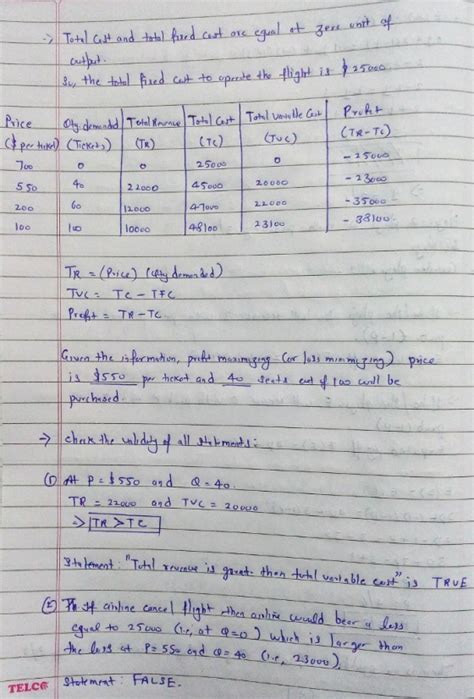 -> Total Cost and total fixed cost are equal at zero unit of
output.
So, the total fixed cost to operate the flight is $ 25000
Price ($ per ticket) Qty demanded (Tickets) Total Revenue (TR) Total Cost (TC) Total Variable Cost (TVC) Profit (TR-TC)
700 0 0 25000 0 -25000
550 40 22000 45000 20000 -23000
200 60 12000 47000 22000 -35000
100 100 10000 48100 23100 -38100
TR = (Price) (Qty demanded)
TVC = TC - TFC
Profit = TR - TC
Given the information, profit maximizing (or loss minimizing) price
is $550 per ticket and 40 seats out of 100 will be
purchased.
-> check the validity of all statements:
(1) At P = $550 and Q = 40.
TR = 22000 and TVC = 20000
=> TR > TC
Statement: "Total revenue is greater than total variable cost" is TRUE
(2) If airline cancel flight then airline would bear a loss
equal to 25000 (i.e, at Q=0) which is larger than
the loss at P = 550 and Q = 40 (i.e, 23000)
Statement: FALSE.
TELCO